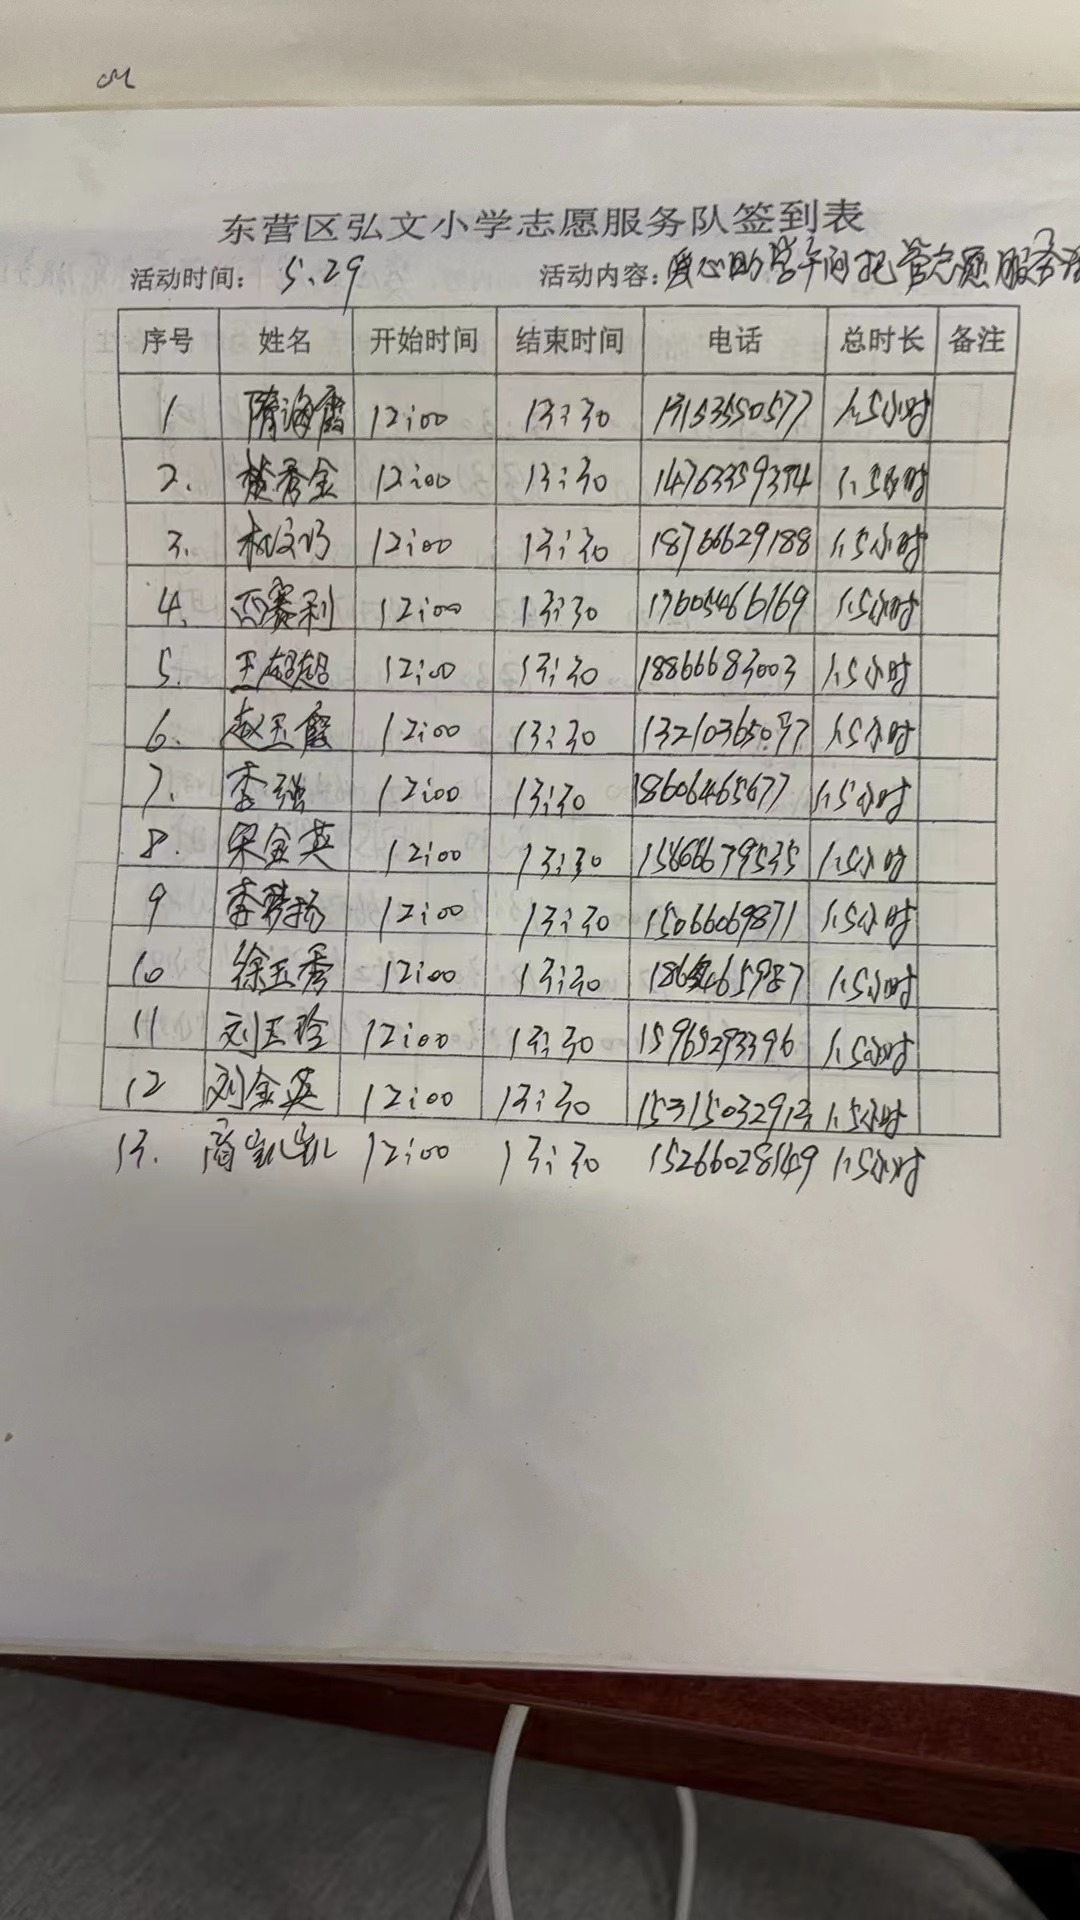 东营区弘文小学志愿服务队签到表
活动时间: 5.29 活动内容: 爱心助学午间托管志愿服务活
序号 姓名 开始时间 结束时间 电话 总时长 备注
1 隋海霞 12:00 13:30 13153550577 1.5小时
2. 楚秀金 12:00 13:30 14763359394 1.5小时
3. 12:00 13:30 18766629188 1.5小时
4. 西赛利 12:00 13:30 17605466169 1.5小时
5. 王超超 12:00 13:30 18866683003 1.5小时
6. 赵玉霞 12:00 13:30 1.5小时
7. 李强 12:00 13:30 18606465677 1.5小时
8. 宋金英 12:00 13:30 15866679535 1.5小时
9 李梦扬 12:00 13:30 15066069871 1.5小时
10 徐玉秀 12:00 13:30 1.5小时
11 刘玉玲 12:00 13:30 15965293396 1.5小时
12 刘金英 12:00 13:30 1.5小时
13. 商凯凯 12:00 13:30 15266028149 1.5小时